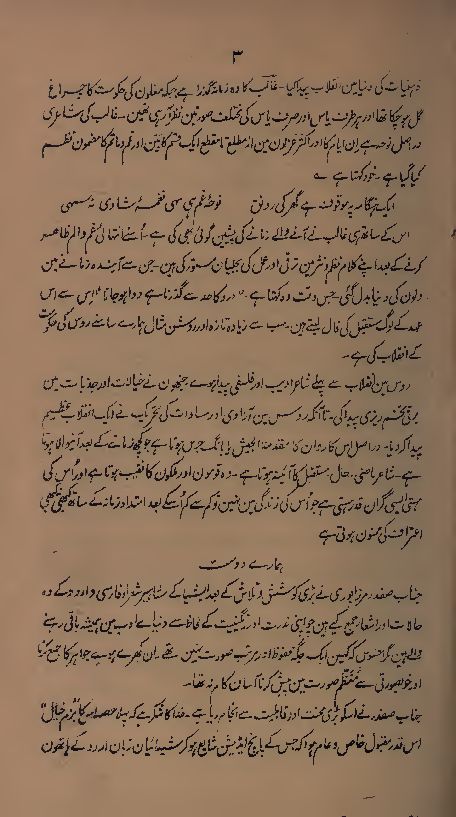 ۳
ذہنیات کی دنیا میں انقلاب پیدا کیا۔ غالب کا وہ زمانہ گذرا ہے جبکہ مغلوں کی حکومت کا چراغ
گل ہو چکا تھا اور ہر طرف یاس اور صرف یاس کی مختلف صورتیں نظر آ رہی تھیں۔ غالب کی شاعری
دراصل نوحہ ہے ان ایام کا اور اکثر غزلوں میں از مطلع تا مقطع ایک قسم کا بین اور غم و ماتم کا مضمون نظم
کیا گیا ہے۔ خود کہتا ہے ؎
ایک ہنگامہ پہ موقوف ہے گھر کی رونق نوحۂ غم ہی سہی نغمۂ شادی نہ سہی
اس کے ساتھ ہی غالب نے آنے والے زمانے کی پیشین گوئی بھی کی ہے۔ اُسنے انتہائی غم و الم ظاہر
کرنے کے بعد اپنے کلام نظم و نثر میں ترقی اور عمل کی بجلیاں مستور کی ہیں۔ جن سے آیندہ زمانے میں
دلوں کی دنیا بدل گئی جس وقت وہ کہتا ہے۔ "درد کا حد سے گذرنا ہے دوا ہو جانا" اس سے اس
عہد کے لوگ مستقبل کی فال لیتے ہیں۔ سب سے زیادہ تازہ اور روشن مثال ہمارے سامنے روس کی حکومت
کے انقلاب کی ہے۔
روس میں انقلاب سے پہلے شاعر ادیب اور فلسفی پیدا ہوے جنھوں نے خیالات اور جذبات میں
برقی تخم ریزی پیدا کی۔ تاآنکہ روس میں آزادی اور مساوات کی تحریک نے ایک انقلاب عظیم
پیدا کر دیا۔ دراصل اس کارواں کا مقدمۃ الجیش یا بانگ جرس ہوتا ہے جو کچھ زمانے کے بعد آنیوالا ہوتا
ہے۔ شاعر ماضی، حال، مستقبل کا آئینہ ہوتا ہے۔ وہ قوموں اور ملکوں کا نقیب ہوتا ہے اور اُس کی
ہستی ایسی گراں قدر ہستی ہے جو اُس کی زندگی میں نہیں تو کم سے کم اُسکے بعد امتداد زمانہ کے ساتھ کبھی نہ کبھی
اعتراف کی ممنون ہوتی ہے
ہمارے دوست
جناب صفدر مرزا پوری نے بڑی کوشش و تلاش کے بعد ایشیا کے مشاہیر شعراء فارسی و اردو کے وہ
حالات اور اشعار جمع کیے ہیں جو اپنی ندرت اور رنگینیت کے لحاظ سے دنیاے ادب میں ہمیشہ باقی رہنے
والے ہیں مگر افسوس کہ کہیں ایک جگہ محفوظ اور مرتب صورت میں نہیں تھے۔ ان بکھرے ہوے جواہر کا جمع کرنا
اور خوبصورتی سے منظم صورت میں پیش کرنا آسان کام نہ تھا۔
جناب صفدر نے اسکو بڑی محنت اور قابلیت سے انجام دیا ہے۔ خدا کا شکر ہے کہ پہلا حصہ اس کا "بزم خیال"
اس قدر مقبول خاص و عام ہوا کہ جس کے پانچ ایڈیشن شایع ہو کر شیدائیان زبان اردو کے ہاتھوں